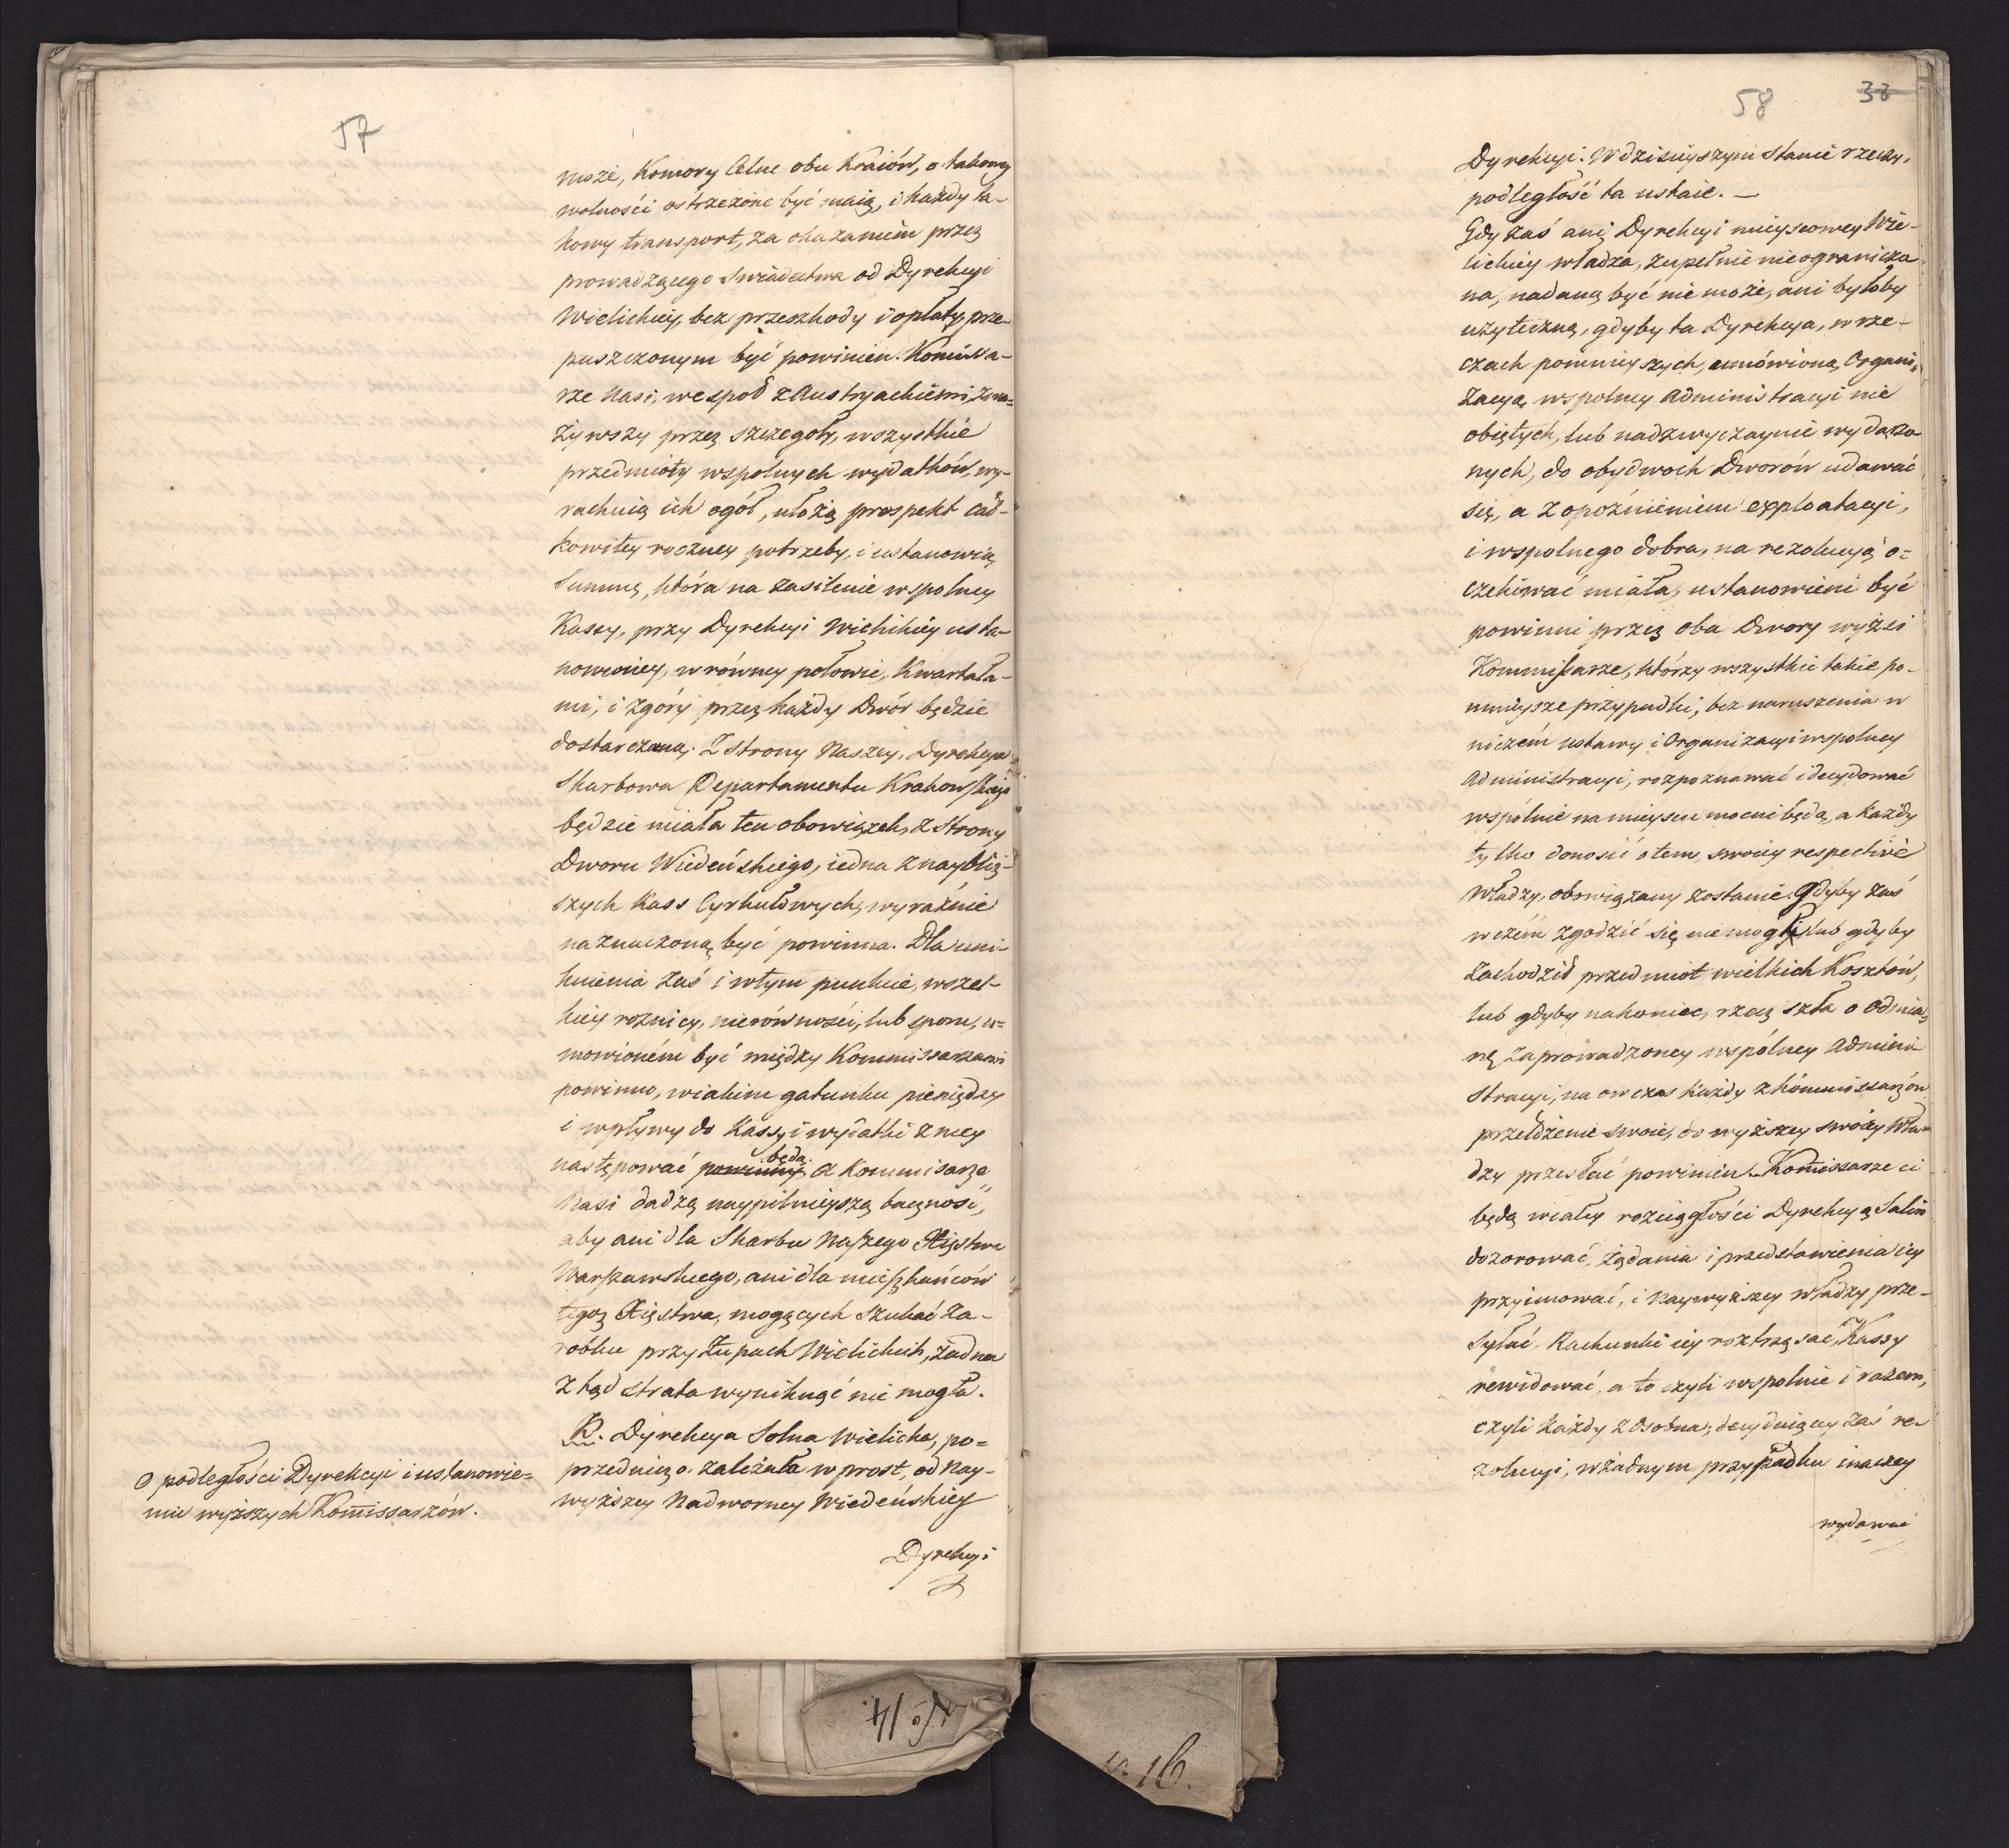 57
może, Komory Celne obu Kraiów, o takowey
wolności ostrzeżone być maią, i każdy ta-
kowy transport, za okazaniem przez
prowadzącego Swiadectwa od Dyrekcyi
Wielickiey, bez przeszkody i opłaty, prze-
puszczonym być powinien. Komissa-
rze Nasi, wespoł z Austryackiemi, zwa-
żywszy przez szczegoły, wszystkie
przedmioty wspolnych wydatków, wy-
rachuią ich ogół, ułożą prospekt cał-
kowitey roczney potrzeby, i ustanowią
Summę, która na zasilenie wspolney
Kassy, przy Dyrekcyi Wielickiey usta-
nowioney, w równey połowie, Kwartała-
mi, i z góry przez każdy Dwór będzie
dostarczaną. Z Strony Naszey, Dyrekcya
Skarbowa Departamentu Krakowskiego
będzie miała ten obowiązek, z Strony
Dworu Wiedeńskiego, iedna z naybliż-
szych Kass Cyrkułowych, wyraźnie
naznaczoną być powinna. Dla uni-
knienia zaś i w tym punkcie, wszel-
kiey rożnicy, nierówności, lub sporu, u=
mowioném być między Kommissarzami
powinno, w iakim gatunku pieniędzy
i wpływy do Kassy i wydatki z niey
będą.
następować powinny. A Kommisarze
Nasi dadzą naypilnieyszą baczność,
aby ani dla Skarbu Naszego Xięstwa
Warszawskiego, ani dla mieszkańców
tegoż Xięstwa, mogących szukać za-
robku przy Żupach Wielickich, żadna
z tąd strata wyniknąć nie mogła.
R. Dyrekcya Solna Wielicka, po=
przedniczo zależała wprost, od Nay-
wyższey Nadworney Wiedeńskiey
Dyrekcyi
O podległości Dyrekcyi i ustanowie=
niu wyższych Komissarzów.
58
33
Dyrekcyi. W dzisieyszym Stanie rzeczy,
podległość ta ustaie. —
Gdy zaś ani Dyrekcyi mieyscowey Wie-
lickiey władza, zupełnie nieograniczo
na, nadaną być nie może, ani byłoby
użyteczną, gdyby ta Dyrekcya, w rze-
czach pomnieyszych, umówioną Organi-
zacyą wspolney Administracyi nie
obiętych, lub nadzwyczaynie wydarzo
nych, do obydwoch Dworów udawać
się, a z opoźnieniem exploatacyi,
i wspolnego dobra, na rezolucyą o=
czekiwać miała, ustanowieni być
powinni przez oba Dwory wyżsi
Kommissarze, którzy wszystkie takie po-
mnieysze przypadki, bez naruszenia w
niczém ustawy i Organizacyi wspolney
Administracyi, rozpoznawać i decydować
wspólnie na mieyscu mocni będą, a każdy
tylko donosić o tem, swoiey respective
władzy, obowiązany zostanie. Gdyby zaś
w czém zgodzić się nie mogli, lub gdyby
zachodził przedmiot wielkich Kosztów,
lub gdyby nakoniec, rzecz szła o odmia-
nę zaprowadzoney wspólney Admini-
stracyi, na ow czas każdy z kommissarzów
przełożenie swoie, do wyższey swoiey Wła-
dzy przesłać powinien. Kom̄issarze ci
będą w całey rozciągłości Dyrekcyą Salin
dozorować, żądania i przedstawienia iey
przyimować, i naywyższey władzy prze-
syłać, Rachunki iey roztrząsać, Kassy
rewidować, a to czyli wspolnie i razem,
czyli każdy z osobna, decyduiącey zaś re-
zolucyi, w żadnym przypadku inaczey
wydawać
No 14.
No 16.